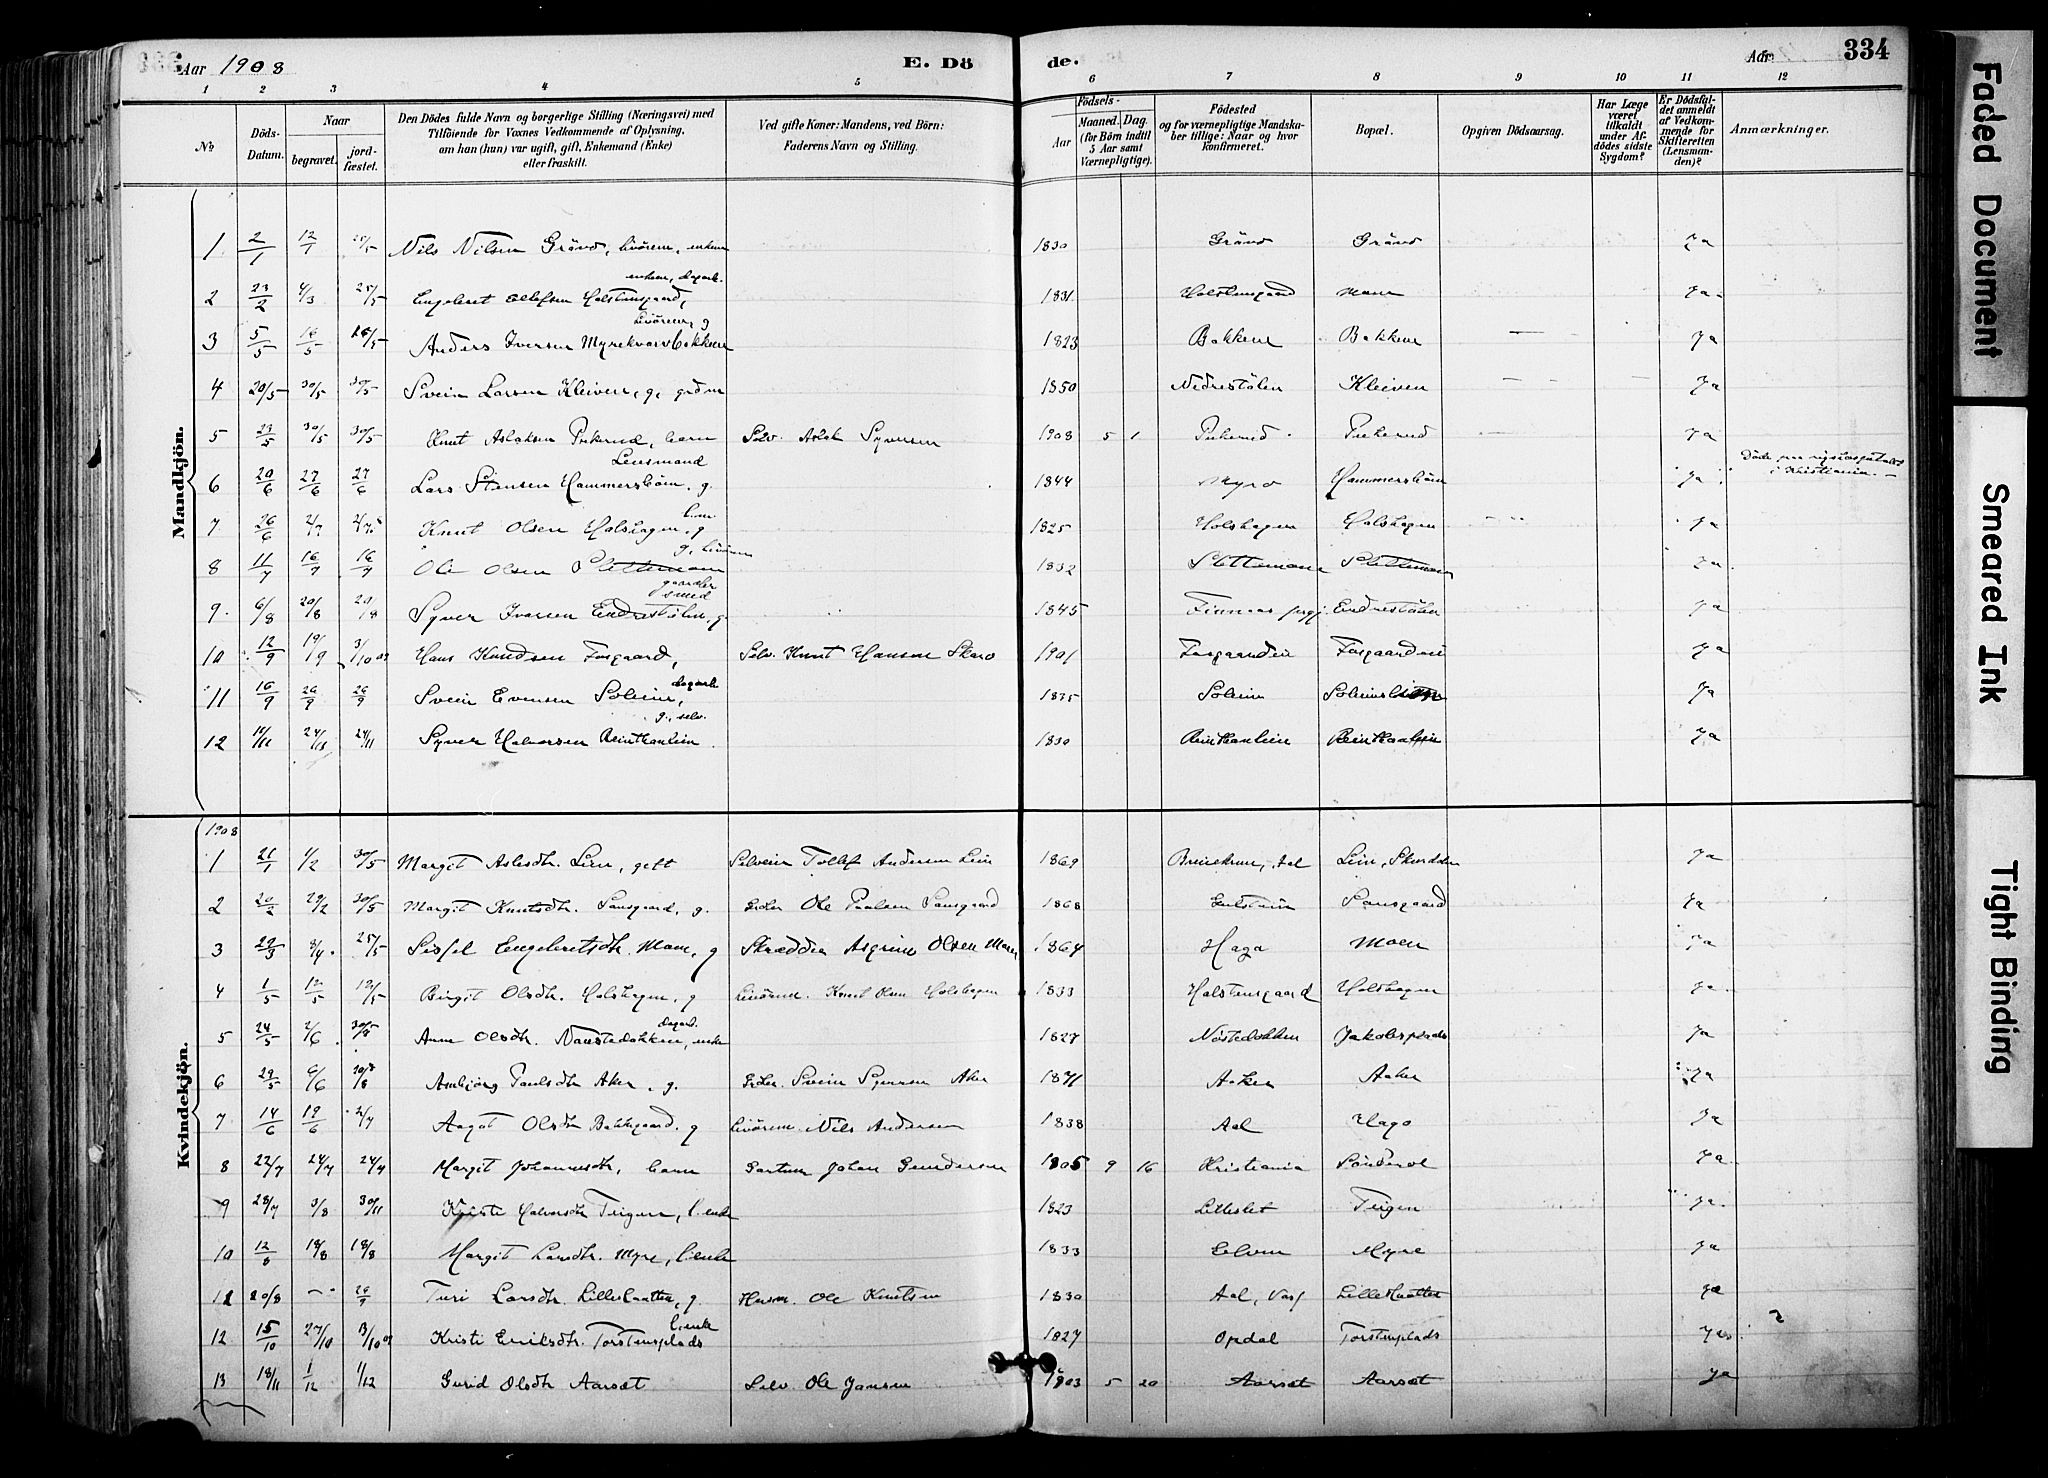 Aar 1908
E. Döde.
Aar
334
1 2 3 4 5 6 7 8 9 10 11 12
No
Döds-Datum.
Naar
begravet.
jord-fæstet.
Den Dödes fulde Navn og borgerlige Stilling (Næringsvei) med
Tilföiende for Voxnes Vedkommende af Oplysning,
om han (hun) var ugift, gift, Enkemand (Enke)
eller fraskilt.
Ved gifte Koner: Mandens, ved Börn:
Faderens Navn og Stilling.
Födsels-
Aar
Maaned. Dag.
(for Börn indtil
5 Aar samt
Værnepligtige).
Födested
og for værnepligtige Mandska-
ber tillige: Naar og hvor
konfirmeret.
Bopæl.
Opgiven Dödsaarsag.
Har Læge
været
tilkaldt
under Af-
dödes sidste
Sygdom?
Er Dödsfal-
det anmeldt
af Vedkom-
mende for
Skifteretten
(Lensman-
den)?
Anmærkninger.
Mandkjön.
1 2/1 12/1 25/5 Nils Nilsen Gränd, livörem, enkem 1830 Gränd Gränd Ja
enkem, dagarb.
2 23/2 4/3 25/5 Engebret Ellefsen Holstensgaard, 1831 Holstensgaard Moen Ja
livörem, g
3 5/5 16/5 16/5 Anders Iversen Myrekvarvbakken 1823 Bakken Bakken — Ja
4 20/5 30/5 30/5 Svein Larsen Kleiven, g, gdm 1850 Nedrestölen Kleiven — — — Ja
5 23/5 30/5 30/5 Knut Aslaksen Pukerud, barn Selv. Aslak Syversen 1908 5 1 Pukerud Pukerud — Ja
Lensmand
6 20/6 27/6 27/6 Lars Stensen Hammersböen, g. 1844 Myro Hammersböen Ja Döde paa rigshospitalet i Kristiania. —
7 26/6 2/7 2/7 Knut Olsen Holshagen, g 1825 Holshagen Holshagen Ja
g, livörem
8 11/7 16/7 16/7 Ole Olsen Slettemoen 1832 Slettemoen Slettemoen Ja
smed
9 6/8 20/8 20/8 Syver Iversen Endrestölen, g. 1845 Endrestölen Ja
10 12/9 19/9 3/10 09 Hans Knudsen Forgaard, Selv. Knut Hansen Skaro 1901 Forgaarden Forgaarden Ja
dagarb
11 16/9 26/9 26/9 Svein Evensen Soleim, 1835 Soleim Ja
g., selv.
12 24/11 24/11 Syver Halvorsen Reinthonlein 1830 Reinthonlein Reinthonlein Ja
Kvindekjön.
1908
1 21/1 1/2 30/5 Margit Aslesdtr. Lien, gift Selveier Tollef Andersen Lien 1869 Aal Lien, Skurdalen Ja
2 20/2 29/2 30/5 Margit Knutsdtr. Sansgaard, g. Ole Paulsen Sansgaard 1868 Sansgaard Ja
3 29/3 8/4 25/5 Sissel Engebretsdtr. Moen, g Skrædder Asgrim Olsen Moen 1864 Haga Moen Ja
4 1/5 12/5 12/5 Birgit Olsdtr. Holshagen, g livörem. Knut Olsen Holshagen 1833 Holstensgaard Holshagen Ja
dagarb.
5 24/5 2/6 30/8 Anne Olsdtr. Naustedokken, enke 1827 Nöstedokken Jakobsplads Ja
6 29/5 6/6 Ambjörg Paulsdtr Aker, g. Svein Syversen Aker 1871 Aaker Aaker Ja
7 14/6 19/6 2/7 Aagot Olsdtr Bakkegaard, g livörem. Nils Andersen 1838 Aal Hago Ja
8 22/7 24/7 24/7 Margit Johannesdtr, barn Gartner Johan Gundersen 1905 9 16 Kristiania Sönderol Ja
9 28/7 3/8 30/11 Kristi Halvorsdtr Teigen, l. enke 1823 Lilleslet Teigen Ja
10 12/8 18/8 18/8 Margit Larsdtr. Myre, l. enke 1833 Elven Myre Ja
11 20/8 — 26/9 Turi Larsdtr. Lilleslaatten, g. Husm. Ole Knutsen 1830 Aal, Vats Lilleslaatten Ja
l. enke
12 15/10 27/10 3/10 09 Kristi Eriksdtr. Torstensplads 1827 Opdal Torstensplads Ja
13 18/11 1/12 1/12 Gurid Olsdtr Aarset Selv. Ole Jansen 1903 5 20 Aarset Aarset Ja
Faded Document
Smeared Ink
Tight Binding